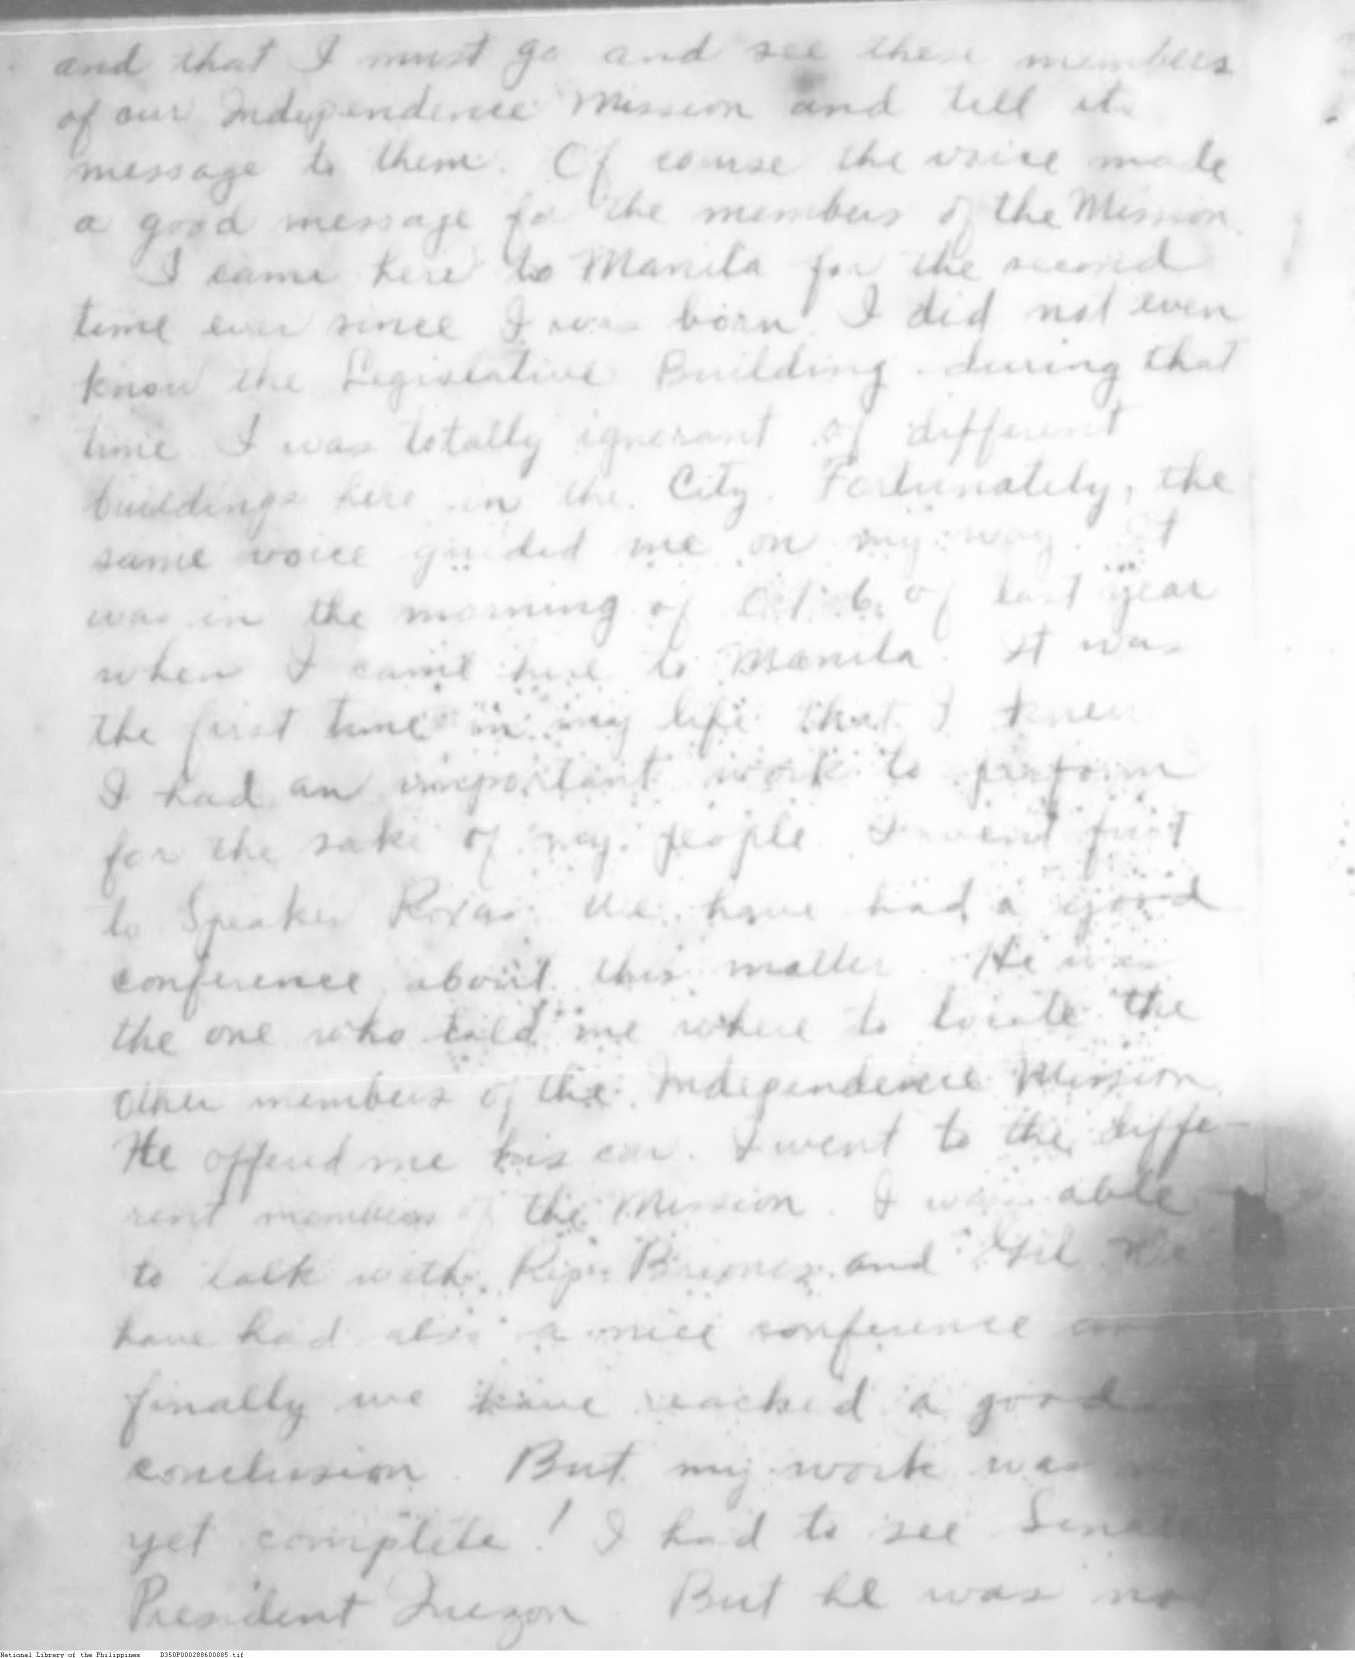 and that I must go and see these members
of our Independence Mission and tell its
message to them. Of course the voice made
a good message for the members of the Mission.
I came here to Manila for the second
time ever since I was born. I did not even
know the Legislative Building during that
time. I was totally ignorant of different
buildings here in the City. Fortunately, the
same voice guided me on my way. It
was in the morning of Oct. 6, of last year
when I came here to Manila. It was
the first time in my life that I knew
I had an important work to perform
for the sake of my people. I went first
to Speaker Roxas. We have had a good
conference about this matter. He was
the one who told me where to locate the
other members of the Independence Mission.
He offered me his car. I went to the diffe-
rent members of the Mission. I was able
to talk with Rep. Briones and Gil. We
have had also a nice conference and
finally we have reached a good
conclusion. But my work was
yet complete! I had to see Senate
President Quezon. But he was no
National Library of the Philippines D350P000288600085.tif